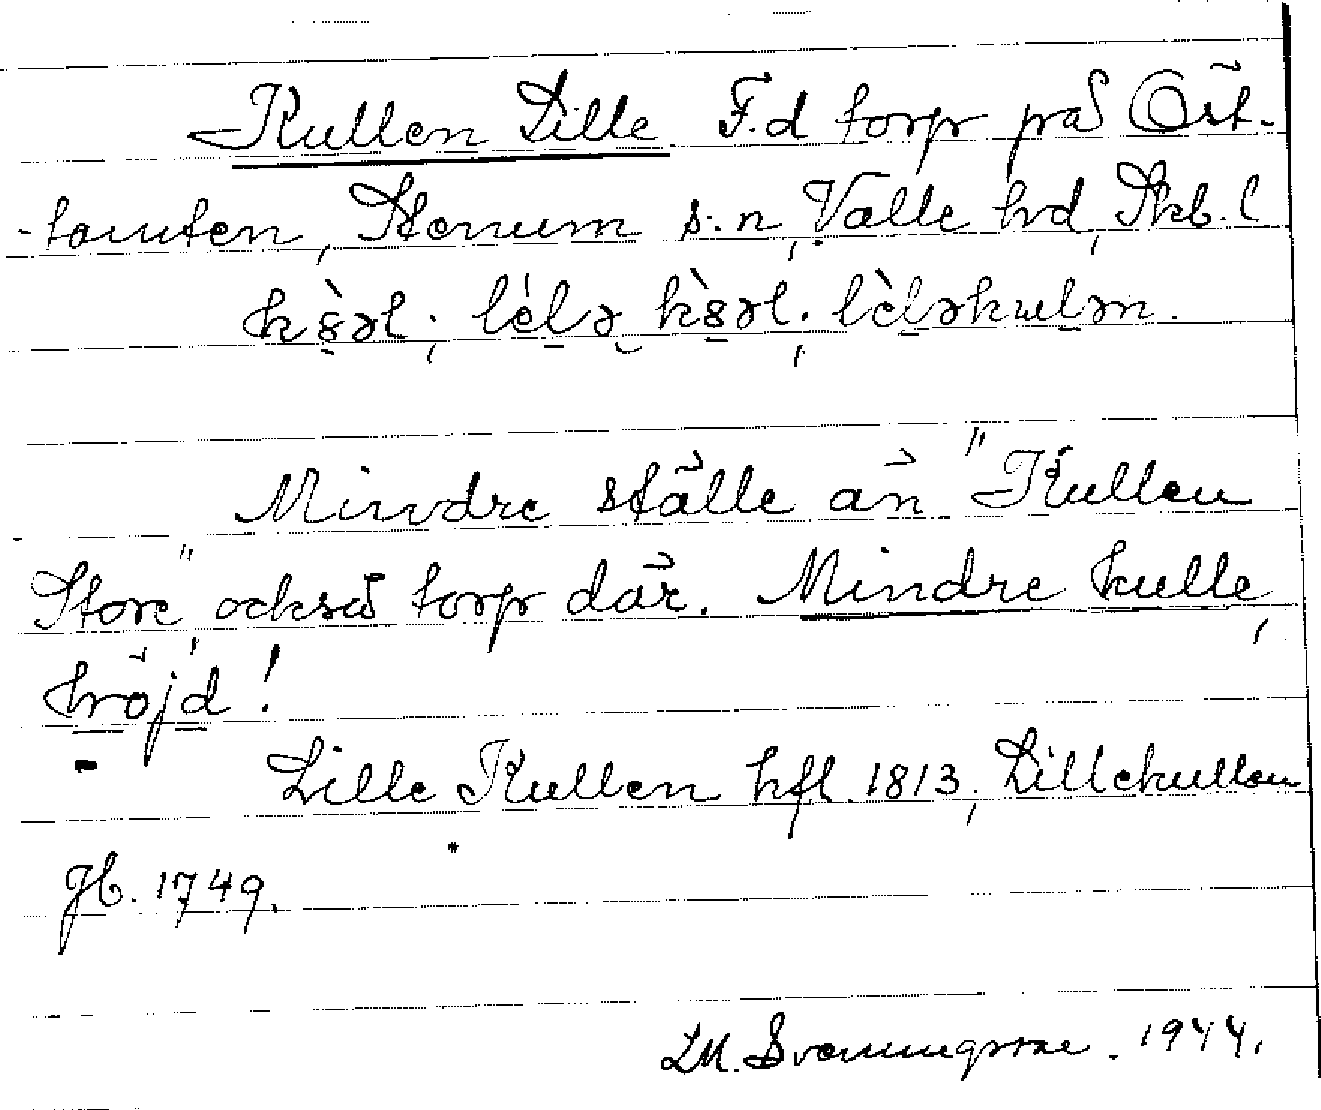 Kullen Lille F.d torp på Öst-
-tomten, Stenum s:n, Valle hd, Skb. l
Mindre ställe än "Kullen
Store", också torp där. Mindre kulle,
höjd!
Lille Kullen hfl 1813; Lillekullen
gb. 1749.
LM. Svenungsson. 1944.